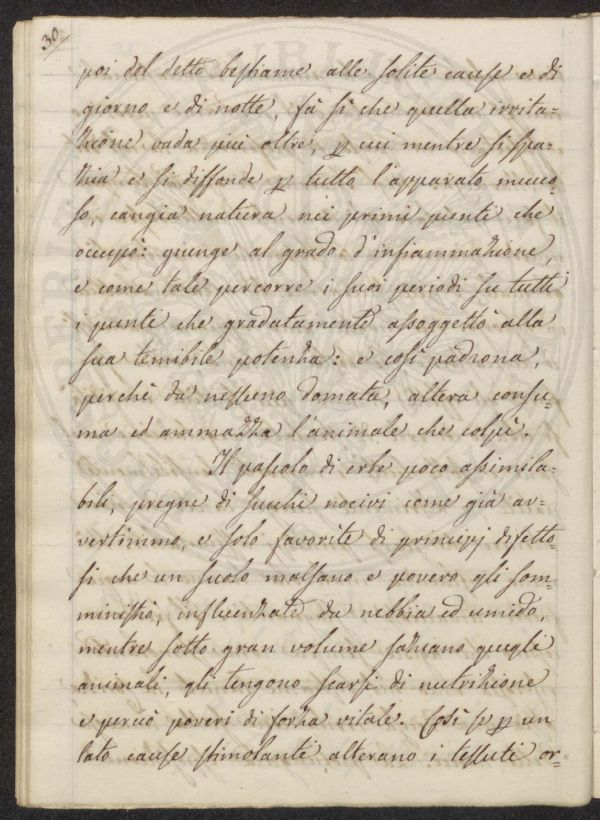 30.
poi del detto bestiame alle solite cause e di
giorno e di notte, fà sì che quella irrita=
zione vada più oltre, p cui mentre si spa=
zia e si diffonde p tutto l'apparato muco=
so, cangia natura nei primi punti che
occupò: giunge al grado d'infiammazione,
e come tale percorre i suoi periodi su tutti
i punti che gradatamente assoggettò alla
sua temibile potenza: e così padrona,
perchè da nessuno domata, altera consu=
ma ed ammazza l'animale che colpì.
Il pascolo di erbe poco assimila=
bili, pregne di succhi nocivi come già av=
vertimmo, e solo favorite di principj difetto=
si che un suolo malsano e povero gli som=
ministrò, influenzate da nebbia ed umido,
mentre sotto gran volume saziano quegli
animali, gli tengono scarsi di nutrizione
e perciò poveri di forza vitale. Così se p un
lato cause stimolanti alterano i tessuti or=